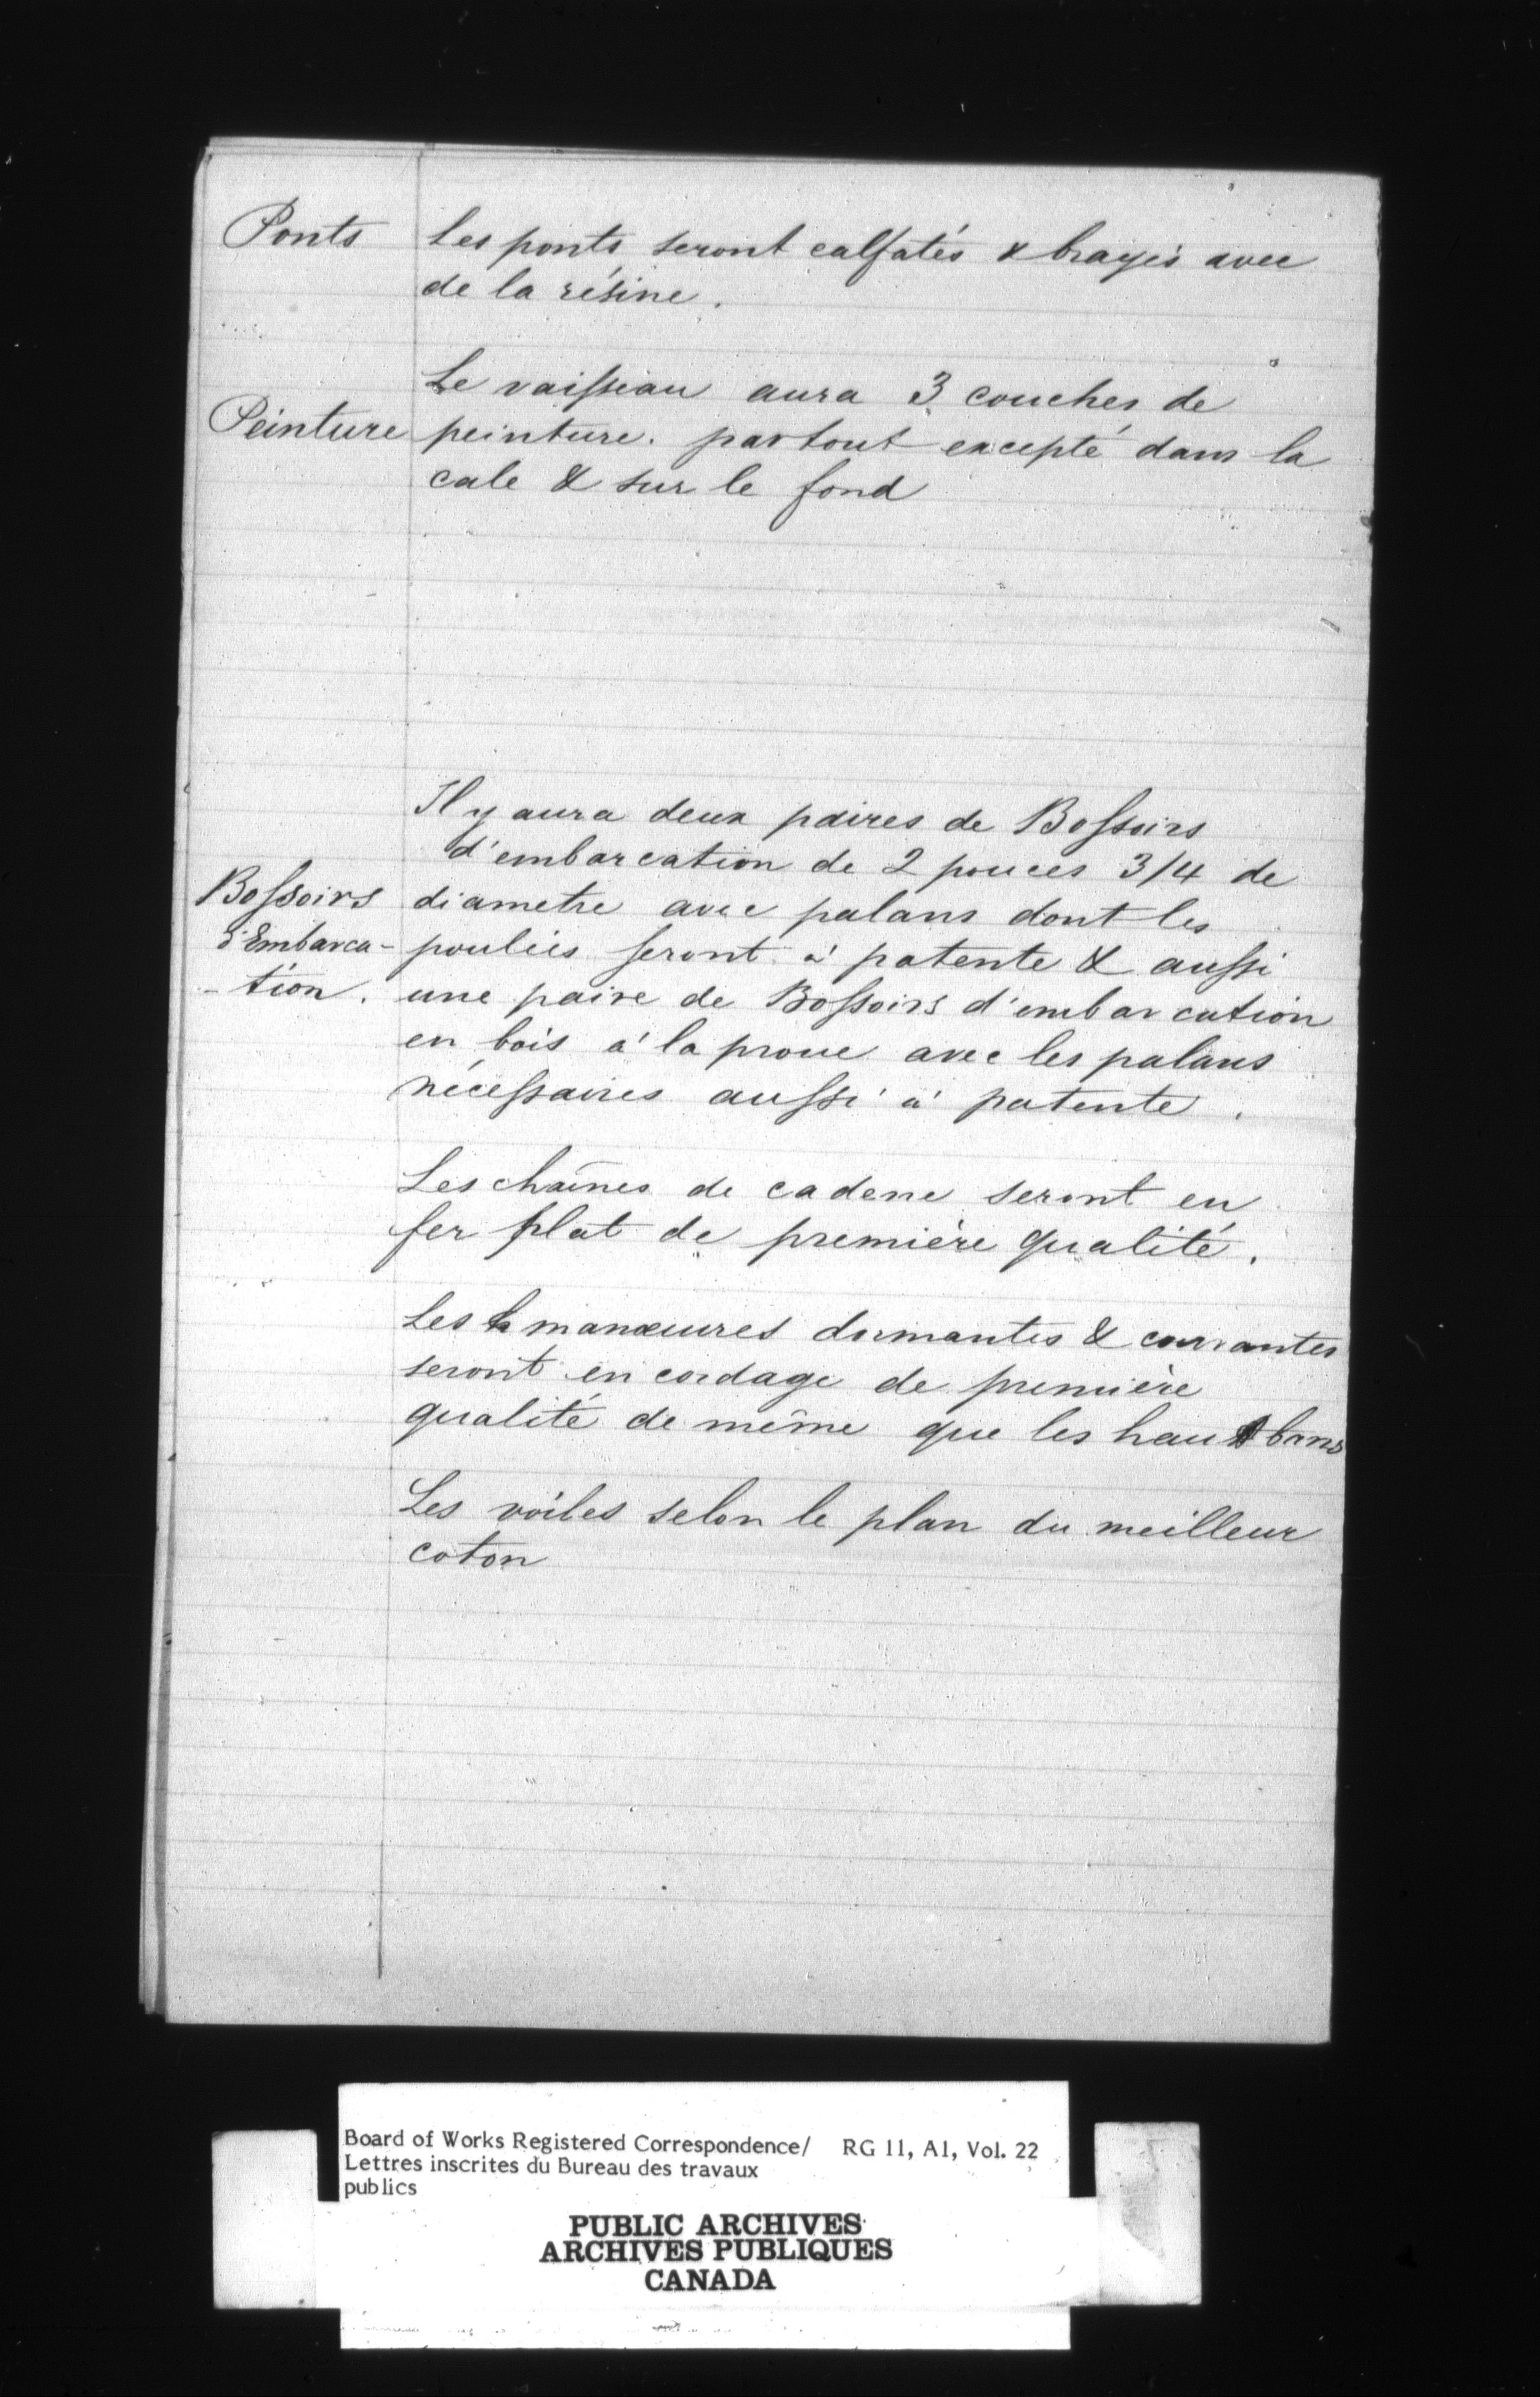 Ponts
Les ponts seront calfatés & brayés avec
de la résine.
Le vaisseau aura 3 couches de
Peinture
peinture. partout excepté dans la
cale & sur le fond
Il y aura deux paires de Bossoirs
d'embarcation de 2 pouces 3/4 de
Bossoirs
diametre avec palans dont les
d'Embarca-
poulies seront à patente & aussi
-tion.
une paire de Bossoirs d'embarcation
en bois à la proue avec les palans
nécessaires aussi à patente.
Les chaînes de cadene seront en
fer plat de première qualité.
Les manœuvres dormantes & courantes
seront en cordage de première
qualité de même que les haubans
Les voiles selon le plan du meilleur
coton
Board of Works Registered Correspondence/ RG 11, A1, Vol. 22
Lettres inscrites du Bureau des travaux
publics
PUBLIC ARCHIVES
ARCHIVES PUBLIQUES
CANADA